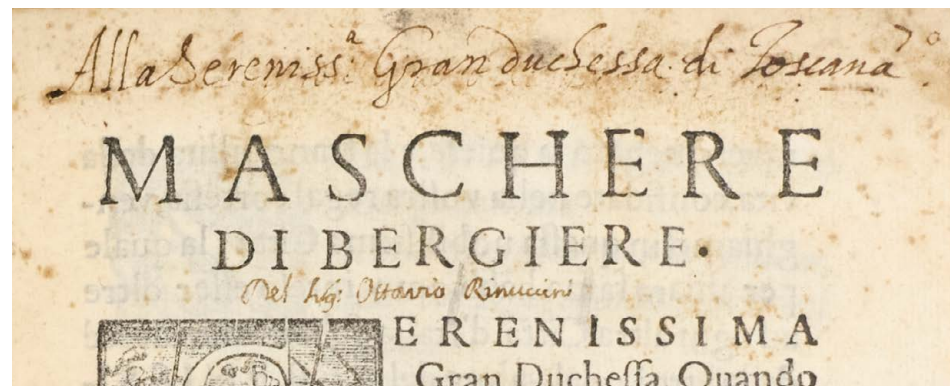 Alla Sereniss:ᵃ Gran duchessa di Toscana
MASCHERE
DI BERGIERE.
Del Sig: Ottavio Rinuccini
ERENISSIMA
Gran Ducheſſa. Quando